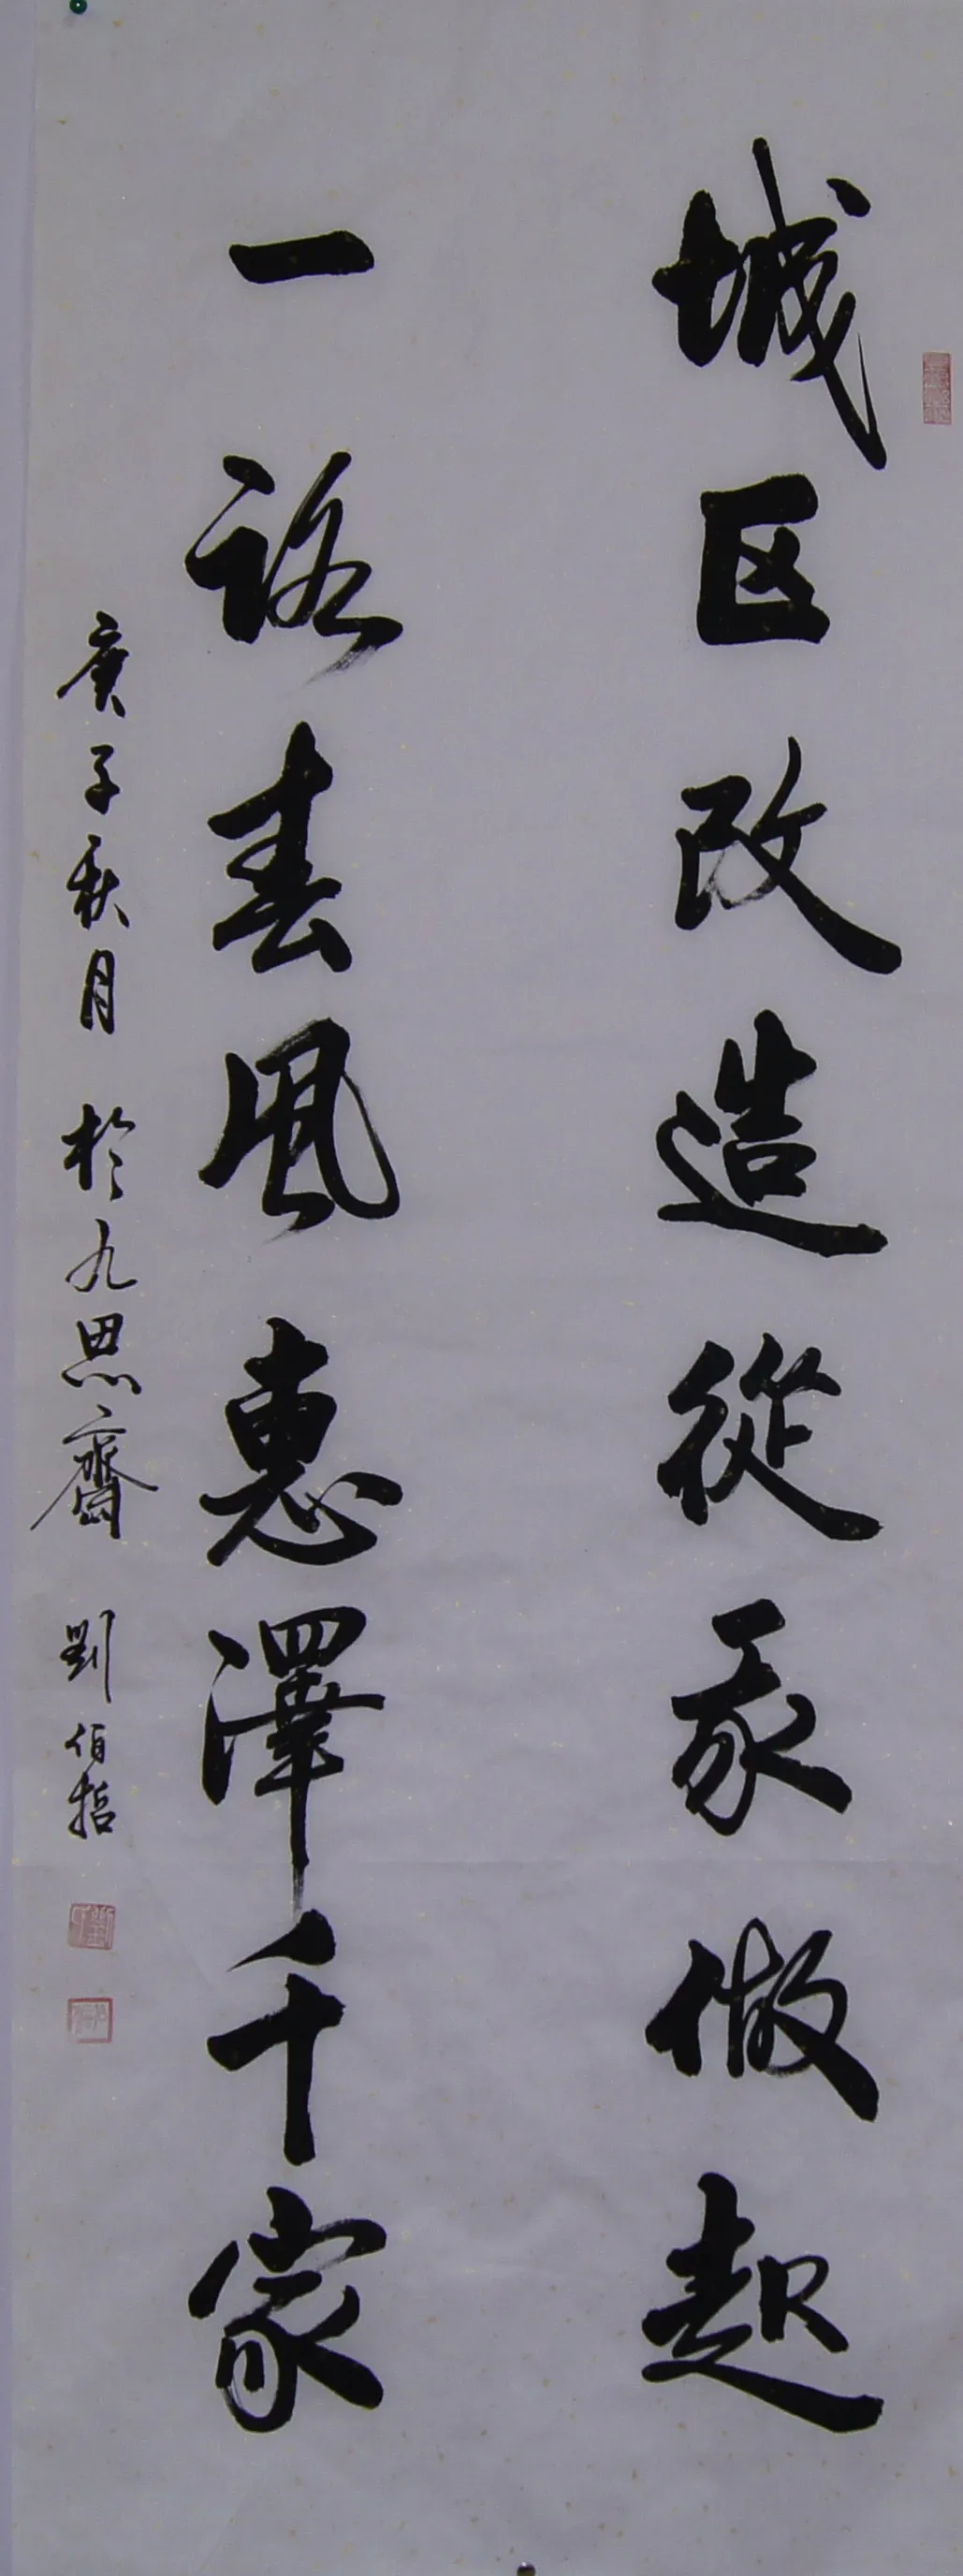 城区改造從豖做起
一路春風惠澤千家
庚子秋月 於九思齋 劉伯哲